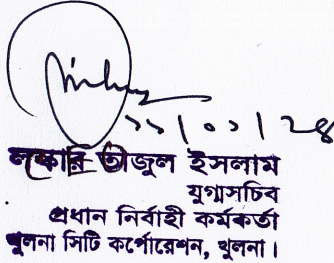 ১১/০১/২৪
লস্কার তাজুল ইসলাম
যুগ্মসচিব
প্রধান নির্বাহী কর্মকর্তা
খুলনা সিটি কর্পোরেশন, খুলনা।